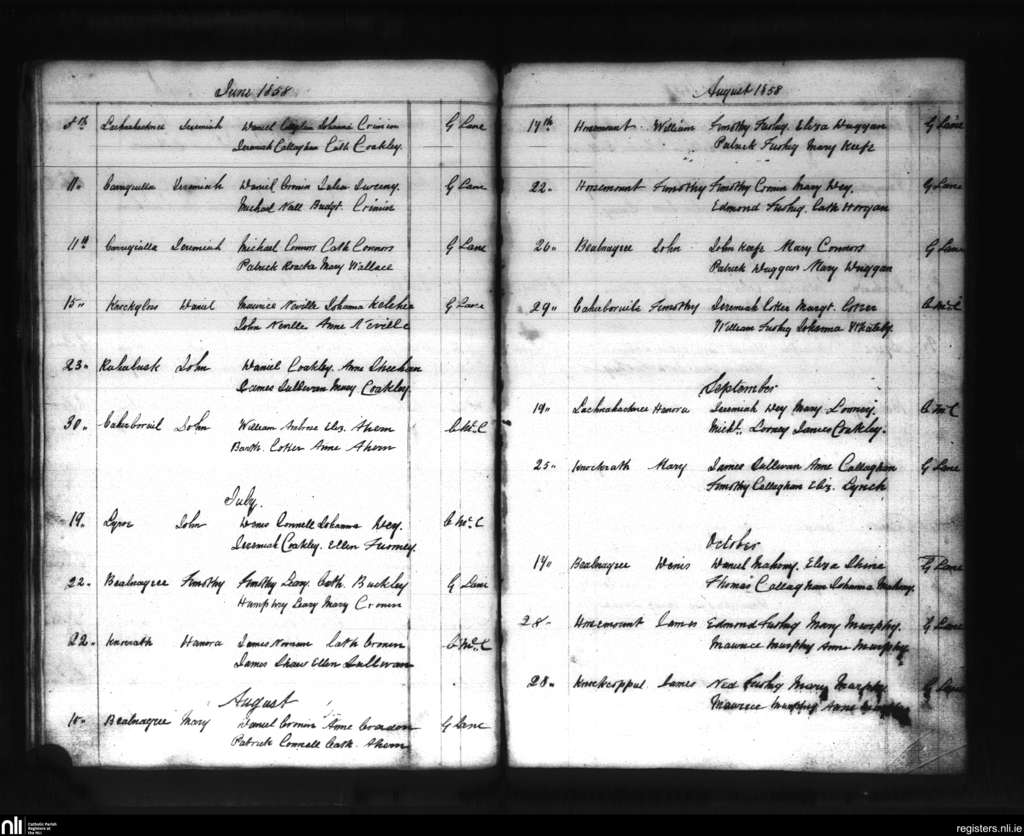 June 1858
8th Lachnahacknee Jeremiah Daniel Johanna Crimin G Lane
Jeremiah Callaghan Cath Coakley.
11" Jeremiah Daniel Cronin Julia Sweeny. G Lane
Michael Budgt. Crimin
11th Jeremiah Michael Connors Cath Connors G Lane
Patrick Roache Mary Wallace
15" Knockgloss Daniel Maurice Neville Johanna Kelcher G Lane
John Neville Anne Neville
23" Rahalusk John Daniel Coakley. Anne Sheehan
James Sullivan Mary Coakley.
30" John William Ambrose Eliz. Ahern C McC
Coker Anne Ahern
July.
19" Lyroe John Denis Connell Johanna Dey. C McC
Jeremiah Coakley. Ellen Twomey.
22" Bealnagree Timothy Timothy Leary Cath. Buckley G Lane
Humphry Leary Mary Cronin
22" Knocrath Hanora James Noonan Cath Cronin C McC
James Shaw Ellen Sullivan
August
10" Bealnagree Mary Daniel Cronin Anne G Lane
Patrick Connell Cath. Ahern
August 1858
17th Horsemount William Timothy Tuohig. Eliza Duggan G Lane
Patrick Tuohig Mary Keefe
22" Horsemount Timothy Timothy Cronin Mary Dey. G Lane
Edmond Tuohig. Cath Horgan
26" Bealnagree John John Keefe Mary Connors G Lane
Patrick Duggan Mary Duggan
29" Timothy Jeremiah Coker Margt. Coker C McC
William Tuohig Johanna
September
19" Lachnahacknee Hanora Jeremiah Dey Mary Looney. C McC
Michl. Looney James Coakley.
25" Knockrath Mary James Sullivan Anne Callaghan G Lane
Timothy Callaghan Eliz. Lynch
October
14" Bealnagree Denis Daniel Mahony. Eliza G Lane
Thomas Callaghan Johanna Mahony.
28" Horsemount James Edmond Tuohig Mary Murphy. G Lane
Maurice Murphy Anne Murphy
28" James Ned Tuohig Mary Murphy G Lane
Maurice Murphy Anne Murphy
nli Catholic Parish
Registers at
the NLI
registers.nli.ie